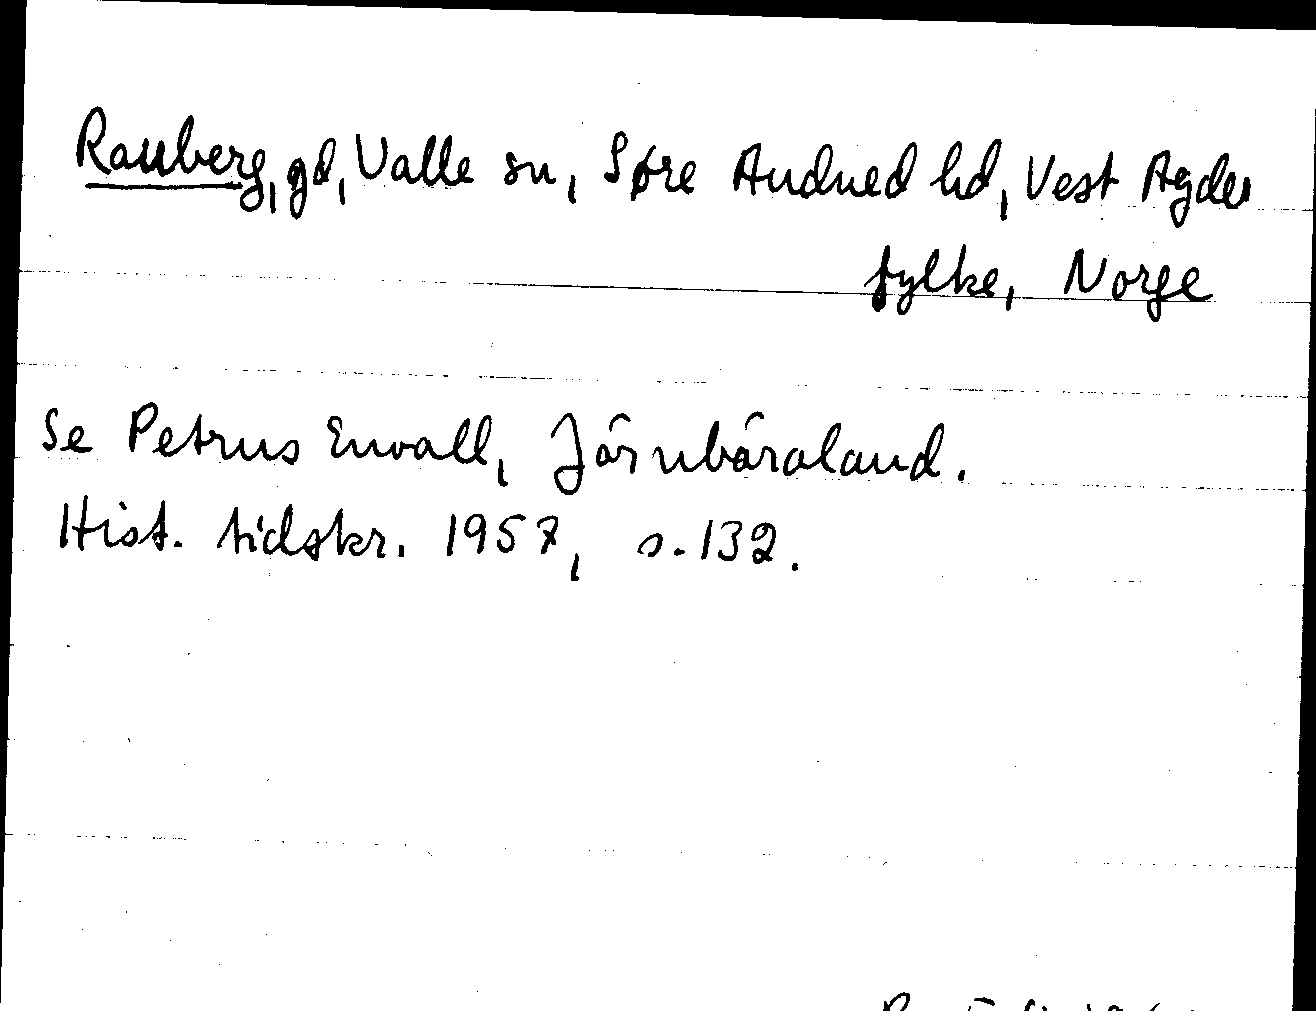 Rauberg, gd, Valle sn, Søre Audned hd, Vest Agder
fylke, Norge
Se Petrus Envall, Järnbäraland.
Hist. tidskr. 1957, s. 132.